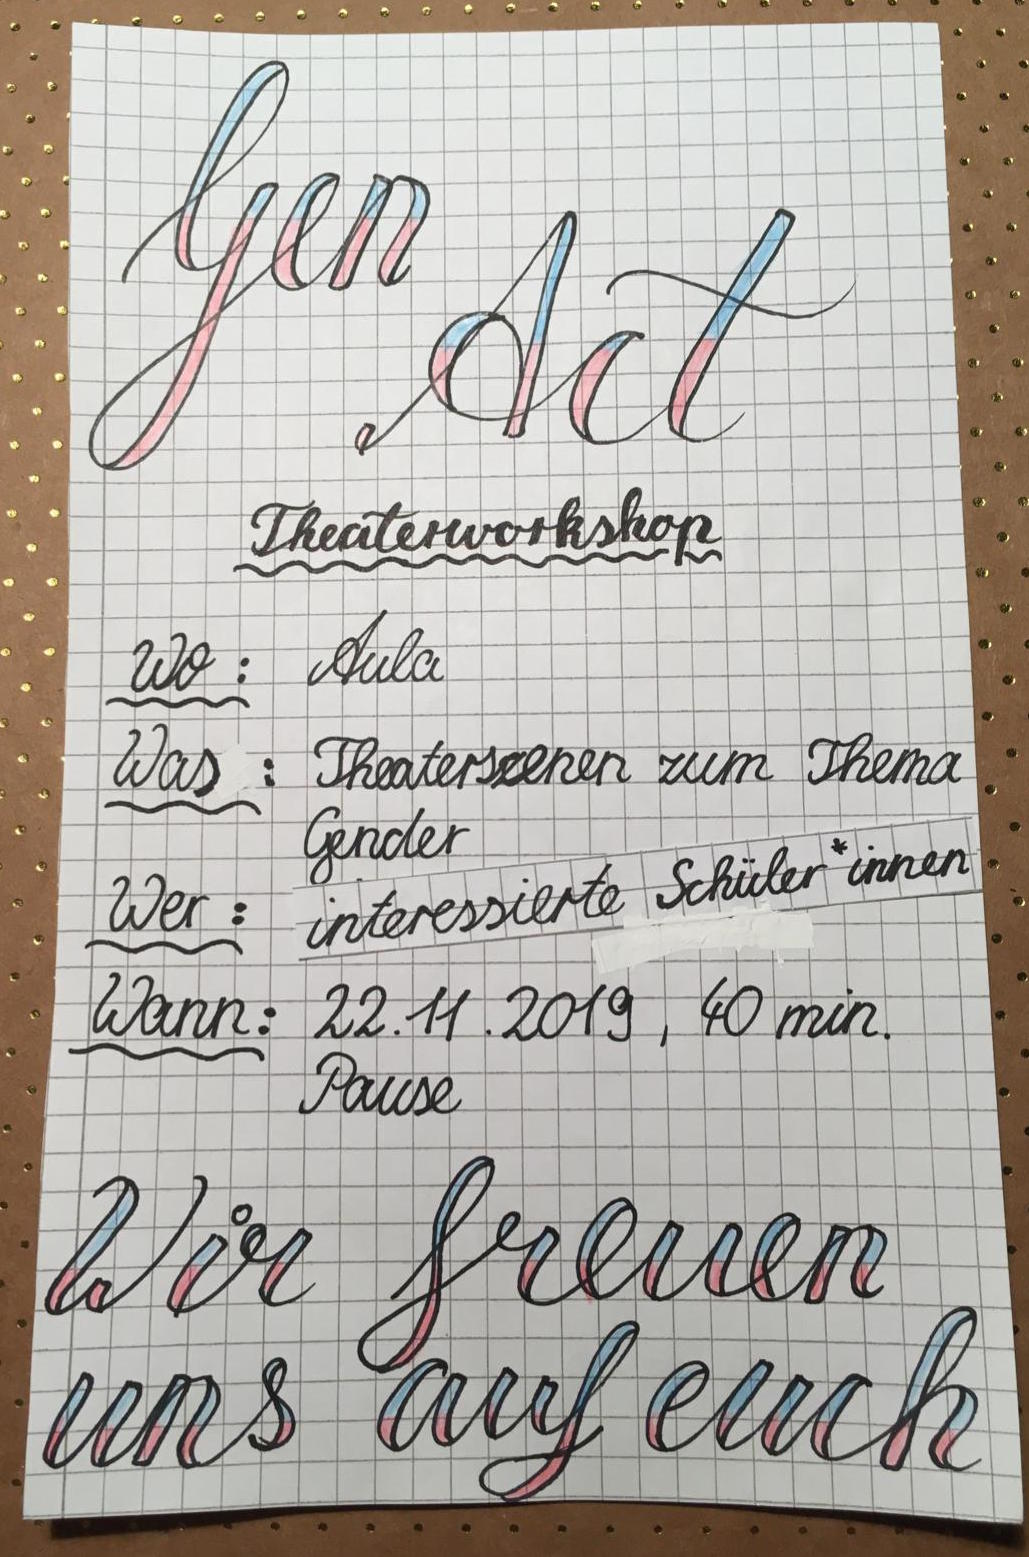 Gen
Act
Theaterworkshop
Wo: Aula
Was: Theaterszenen zum Thema
Gender
Wer: interessierte Schüler*innen
Wann: 22.11.2019, 40 min.
Pause
Wir freuen
uns auf euch